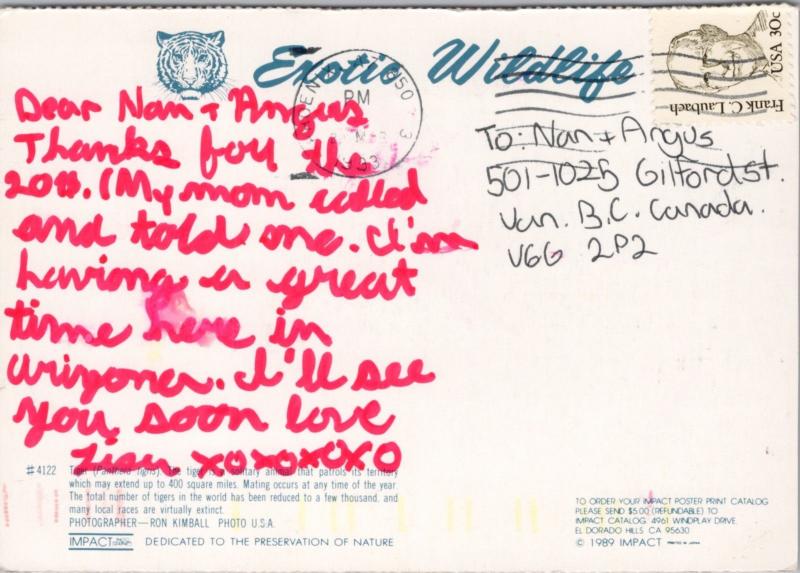 Exotic Wildlife
USA 30c
Frank C. Laubach
PM
Dear Nan + Angus
Thanks for the
20$. (My mom called
and told me. I'm
having a great
time here in
arizona. I'll see
you soon love
xoxoxoxo
To: Nan + Angus
501-1025 Gilford st.
Van. B.C. Canada.
V6G 2P2
#4122 Tiger (Panthera tigris). The tiger is a solitary animal that patrols its territory
which may extend up to 400 square miles. Mating occurs at any time of the year.
The total number of tigers in the world has been reduced to a few thousand, and
many local races are virtually extinct.
PHOTOGRAPHER—RON KIMBALL PHOTO U.S.A.
IMPACT DEDICATED TO THE PRESERVATION OF NATURE
TO ORDER YOUR IMPACT POSTER PRINT CATALOG
PLEASE SEND $5.00 (REFUNDABLE) TO
IMPACT CATALOG 4961 WINDPLAY DRIVE,
EL DORADO HILLS CA 95630
© 1989 IMPACT PRINTED IN JAPAN